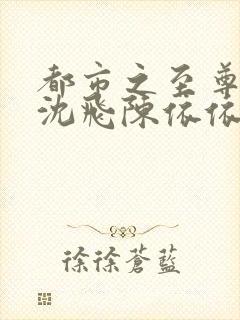 都市之至尊
沈飛陳依依
徐徐蒼藍